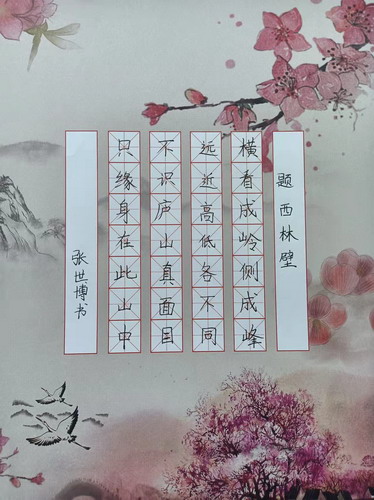 题西林壁
横看成岭侧成峰
远近高低各不同
不识庐山真面目
只缘身在此山中
张世博书